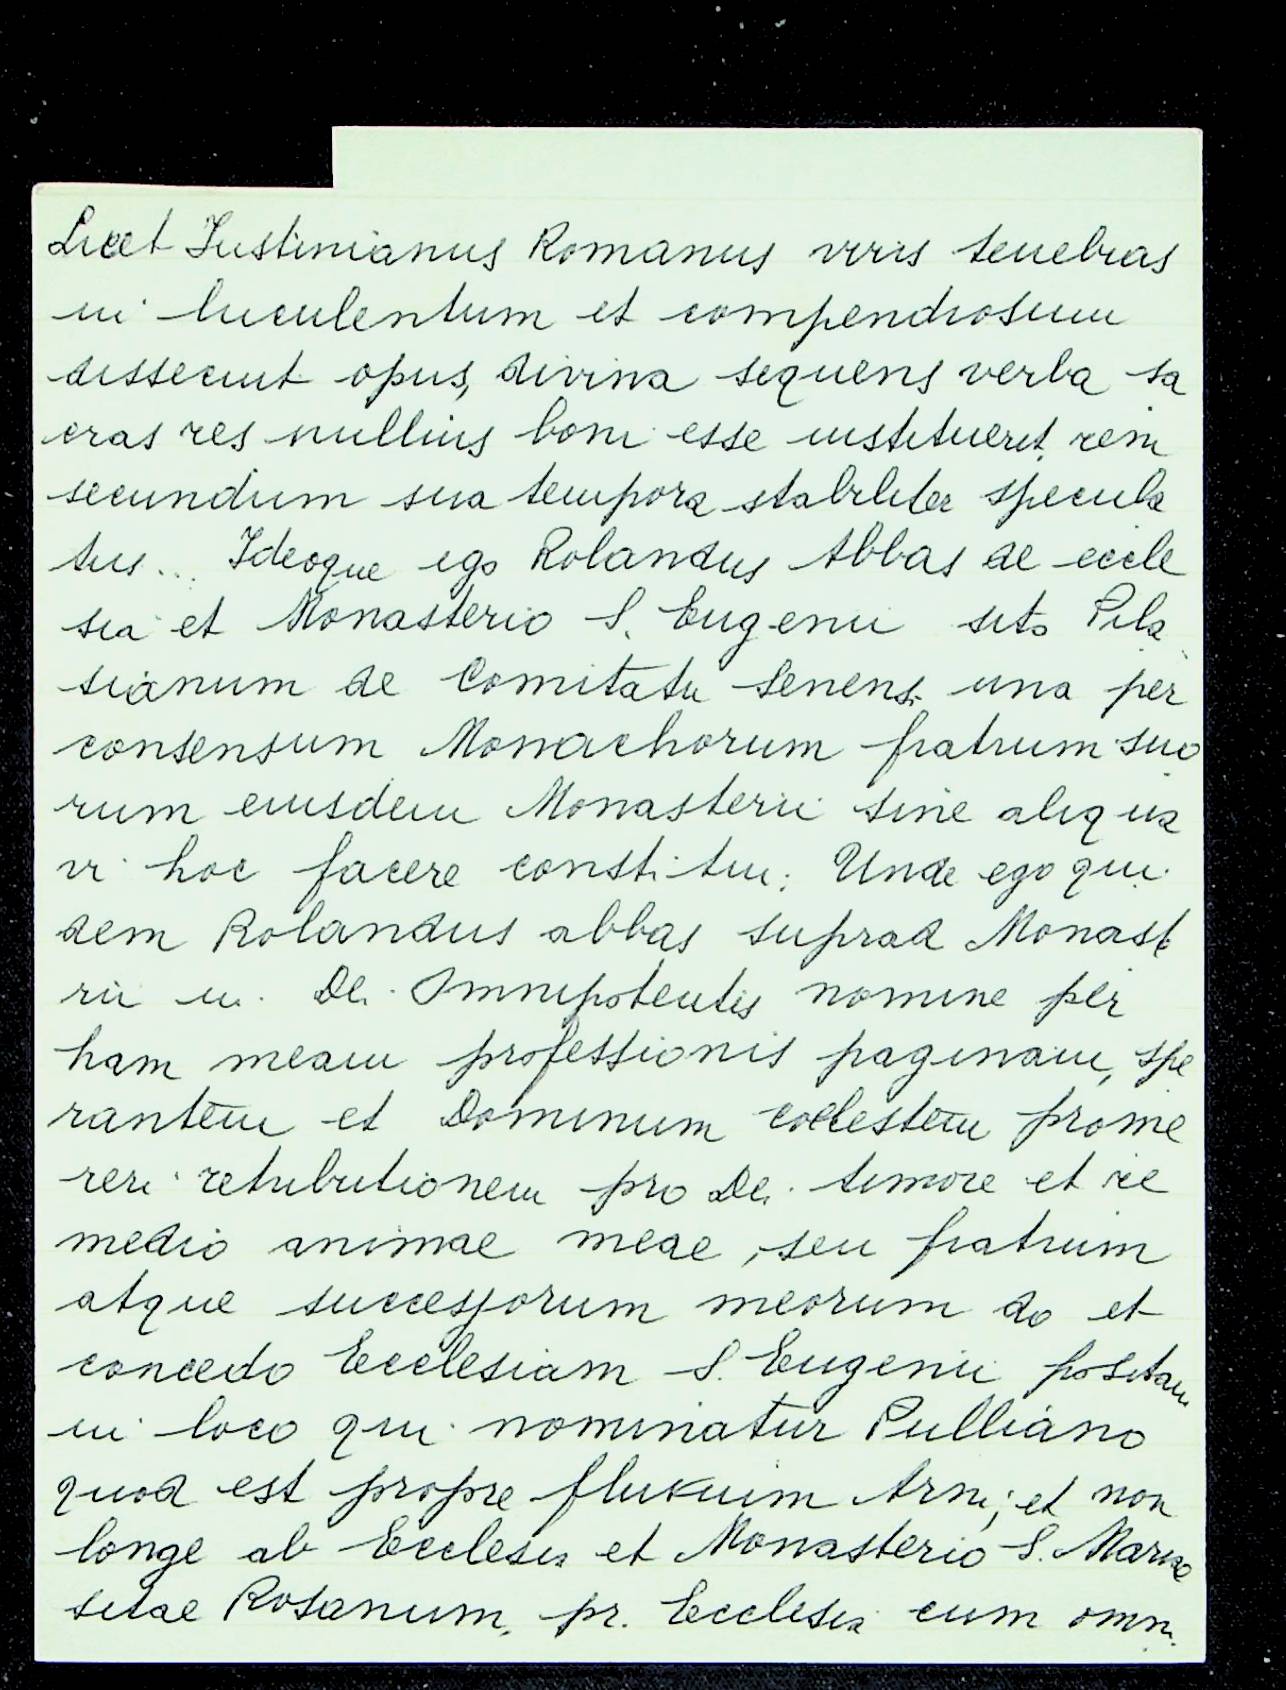 Licet Iustinianus Romanus viris tenebras
in luculentum et compendiosum
dissecuit opus, divina sequens verba sa
cras res nullius boni esse institueret, rem
secundum sua tempora stabiliter specula
tus... Ideoque ego Rolandus Abbas de eccle
sia et Monasterio S. Eugenii sito Pila
sianum de Comitatu Senensi una per
consensum Monachorum fratrum suo
rum eiusdem Monasterii sine aliqua
vi hoc facere constitui; Unde ego qui
dem Rolandus abbas suprad Monast
rii in Dei Omnipotentis nomine per
ham meam professionis paginam, spe
rantem et Dominum coelestem prome
reri retributionem pro Dei timore et re
medio animae meae, seu fratrum
atque successorum meorum do et
concedo Ecclesiam S. Eugenii positam
in loco qui nominatur Pulliano
quod est propre flukuim Arni; et non
longe ab Ecclesia et Monasterio S. Mariae
sitae Rosanum, pr. Ecclesia cum omni